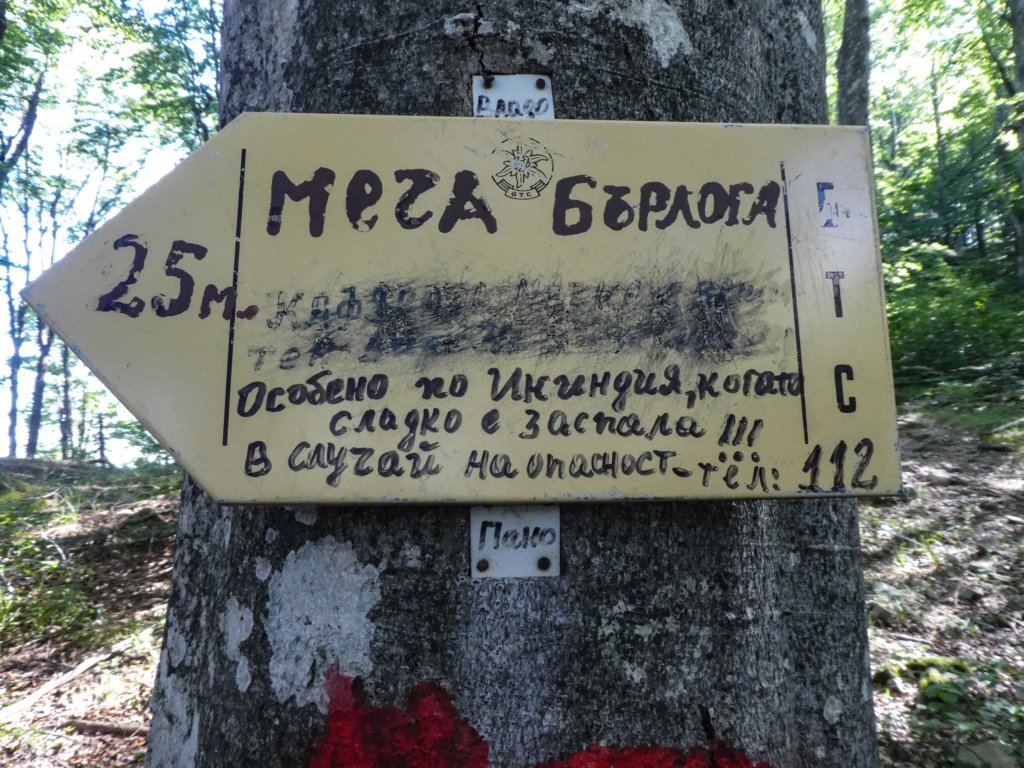 Владо
МЕГА БЪРЛОГА
БТС
25 м.
Г
Т
С
Особено по Ингиндия, когато
сладко е заспала !!!
В случай на опасност - тел: 112
Пано